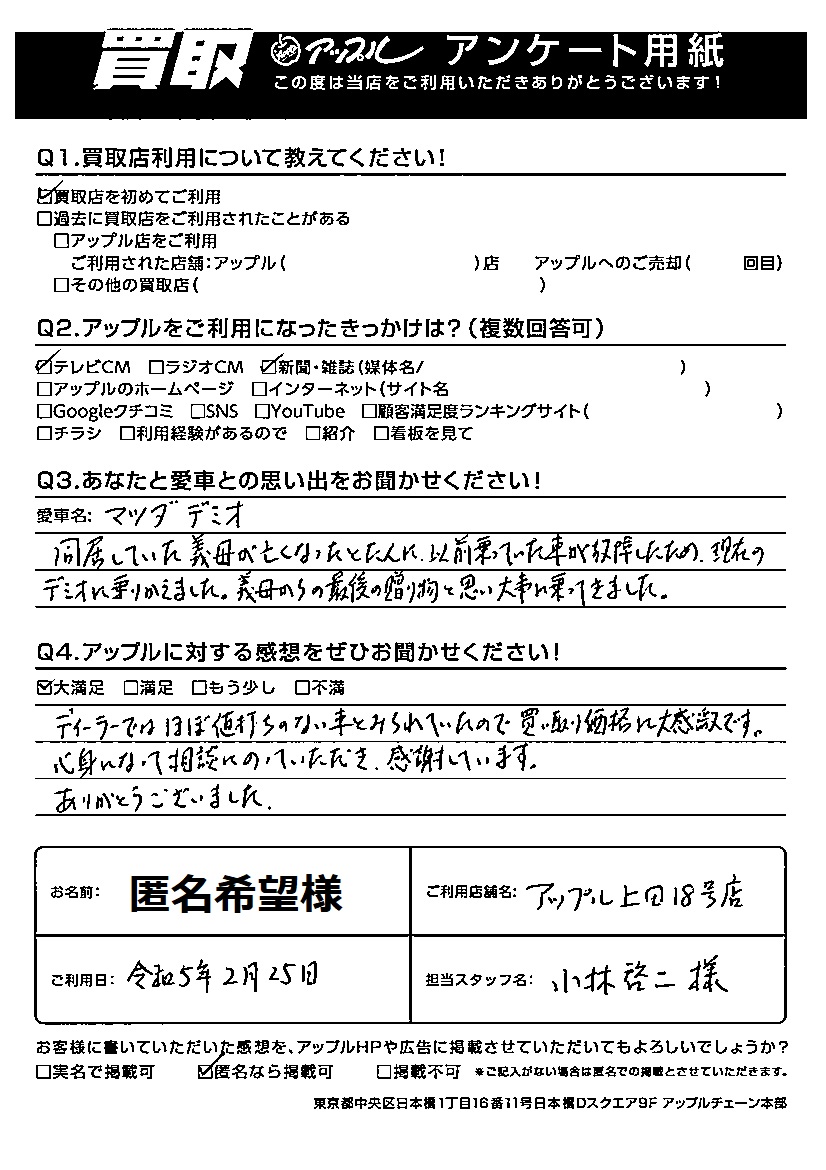 買取 アップル アンケート用紙
この度は当店をご利用いただきありがとうございます！
Q1.買取店利用について教えてください！
☑買取店を初めてご利用
□過去に買取店をご利用されたことがある
□アップル店をご利用
ご利用された店舗：アップル（ ）店 アップルへのご売却（ 回目）
□その他の買取店（ ）
Q2.アップルをご利用になったきっかけは？（複数回答可）
☑テレビCM □ラジオCM ☑新聞・雑誌（媒体名/ ）
□アップルのホームページ □インターネット（サイト名 ）
□Googleクチコミ □SNS □YouTube □顧客満足度ランキングサイト（ ）
□チラシ □利用経験があるので □紹介 □看板を見て
Q3.あなたと愛車との思い出をお聞かせください！
愛車名： マツダ デミオ
同居していた義母が亡くなったとたんに、以前乗っていた車が故障したため、現在の
デミオに乗りかえました。義母からの最後の贈り物と思い大事に乗ってきました。
Q4.アップルに対する感想をぜひお聞かせください！
☑大満足 □満足 □もう少し □不満
ディーラーではほぼ値打ちのない車とみられていたので買い取り価格に大感激です。
心身になって相談にのっていただき、感謝しています。
ありがとうございました。
お名前： 匿名希望様
ご利用店舗名： アップル上田18号店
ご利用日： 令和5年2月25日
担当スタッフ名： 小林啓二 様
お客様に書いていただいた感想を、アップルHPや広告に掲載させていただいてもよろしいでしょうか？
□実名で掲載可 ☑匿名なら掲載可 □掲載不可 ※ご記入がない場合は匿名での掲載とさせていただきます。
東京都中央区日本橋1丁目16番11号日本橋Dスクエア9F アップルチェーン本部